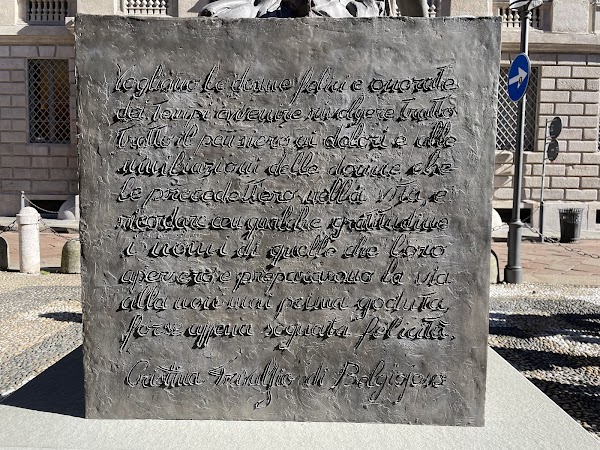 Vogliano le donne felici e onorate
dei tempi avvenire rivolgere tratto
tratto il pensiero ai dolori e alle
umiliazioni delle donne che
le precedettero nella vita, e
ricordare con qualche gratitudine
i nomi di quelle che loro
apersero e prepararono la via
alla non mai prima goduta,
forse appena sognata felicità.
Cristina Trivulzio di Belgiojoso